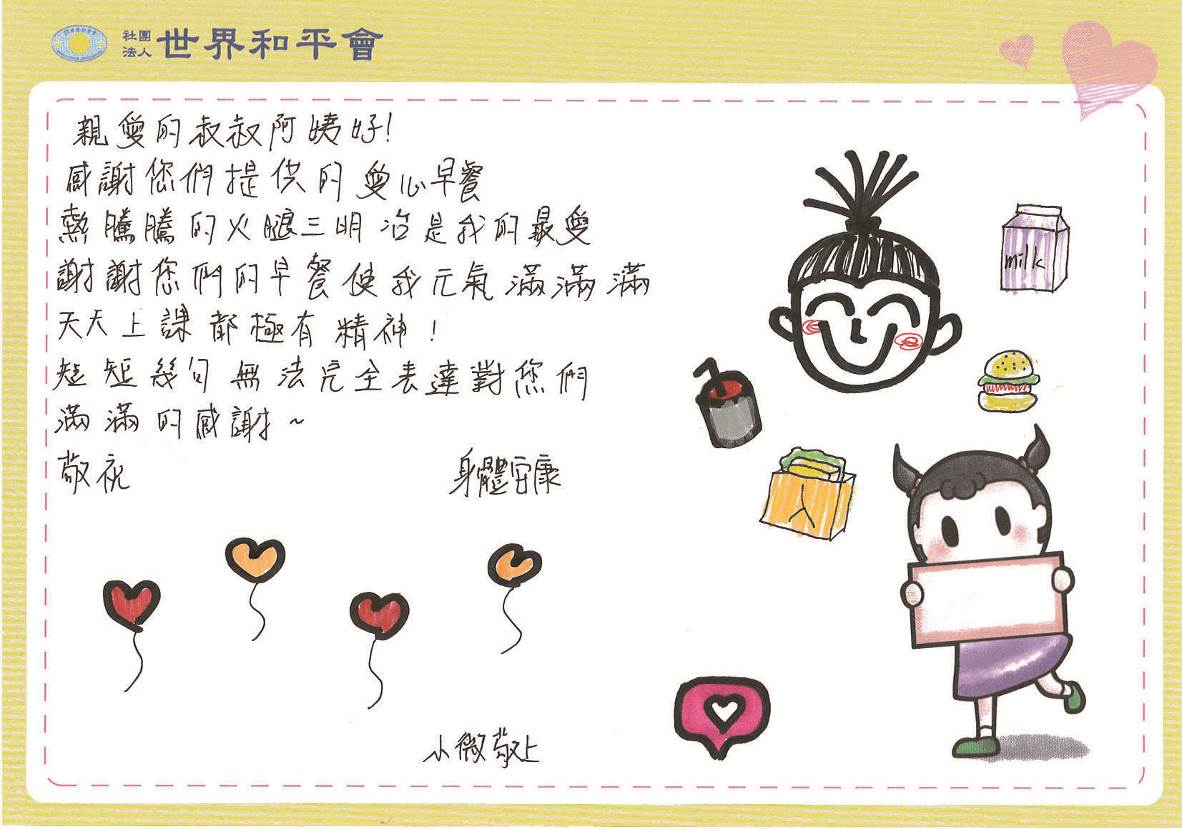 社團法人 世界和平會
親愛的叔叔阿姨好!
感謝您們提供的愛心早餐
熱騰騰的火腿三明治是我的最愛
謝謝您們的早餐使我元氣滿滿滿
天天上課都極有精神!
短短幾句無法完全表達對您們
滿滿的感謝~
敬祝 身體安康
小微敬上
milk